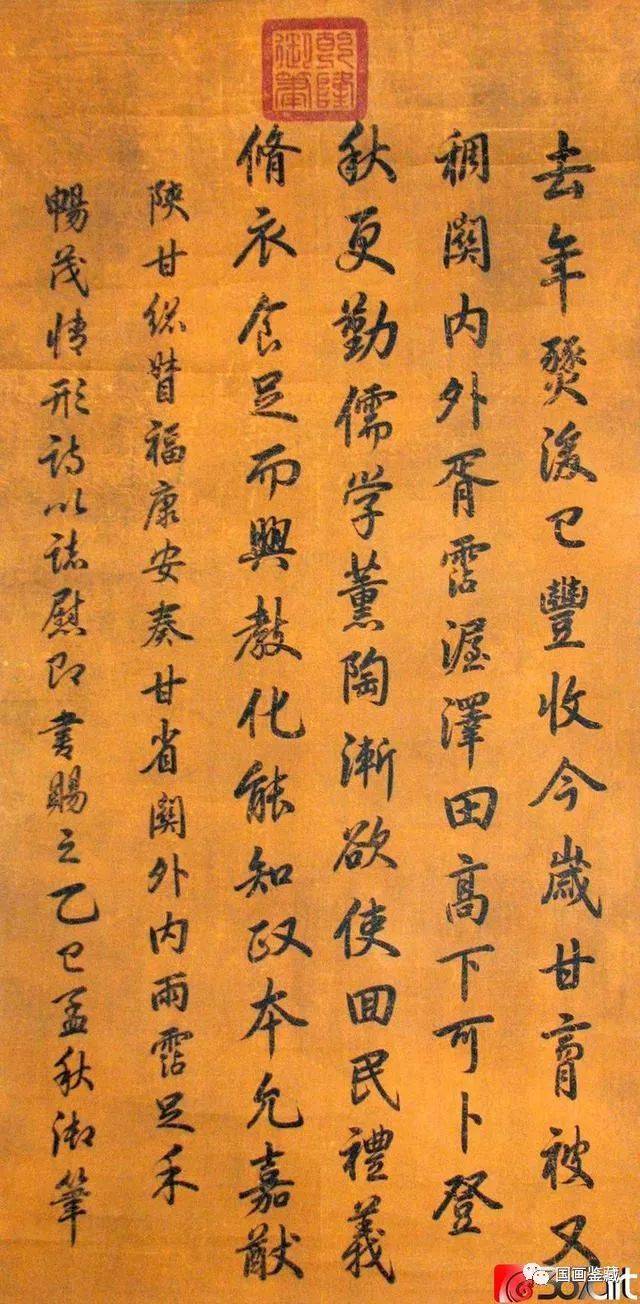 乾隆御筆
去年燹後已豐收今歲甘膏被又
稠闗内外胥霑渥澤田髙下可卜登
秋更勤儒学薰陶漸欲使囬民禮義
脩衣食足而興教化能知政本允嘉猷
陝甘総督福康安奏甘省闗外内雨霑足禾
暢茂情形詩以誌慰即書賜之乙巳孟秋御筆
国画鉴藏